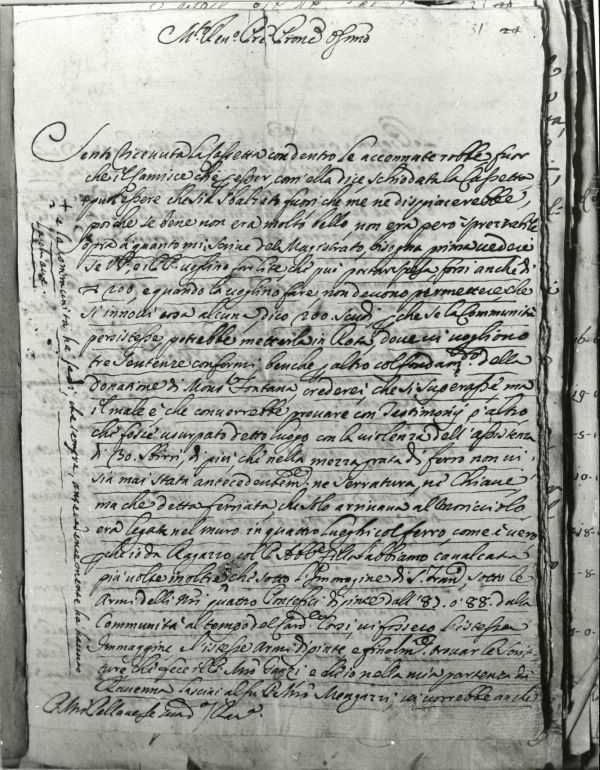 31 24
M.to Ren.o Pre Prone Oss.mo
Sento ricevuta la Cassetta con dentro le accennate robbe fuor
che il fannice che esser, com'ella dice schiodata la Cassetta
può essere che sia sbalzato fuori che me ne dispiacerebbe,
poiche se bene non era molto bello non era però sprezzabile
Ora à quanto mi scrive del Magistrato, bisogna prima vedere
se voglino far lite che può portar spesa forsi anche di
200, e quando la voglino fare non devono permettere che
si innovi cosa alcuna, dico 200 scudi, che se la Communità
persistesse potrebbe metterla in Rota, dove vi vogliono
tre sentenze conformi, benche p altro col fondam.to della
donatione di Mons. Fontana, crederei che si superasse ma
il male è che converrebbe provare con Testimonij p altro
che fosse usurpato detto luogo con la violenza dell'assistenza
di 30 sbirri, di più che nella mezza porta di ferro non vi
sia mai stata antecedentem.te ne serratura, ne Chiave
ma che detta ferriata, che solo arrivava al
era legata nel muro in quattro luoghi col ferro, come è vero
che io da Ragazzo col habbiamo cavalcata
più volte inoltre che sotto l'Immagine di S. Fran.o sotto le
Armi delli quattro Pontefici dipinte dall' 87. o 88. dalla
Communità al tempo del Card.e Corsi, vi fossero l'istessa
Immaggine l'istesse Armi dipinte e trovar le scrit-
ture che fece il P. Mro e che io nella mia partenza di
Ravenna lasciai al fu P. Mro Mengazzi, vi vorrebbe anche
+ e la Communità ha sodi, che sempre